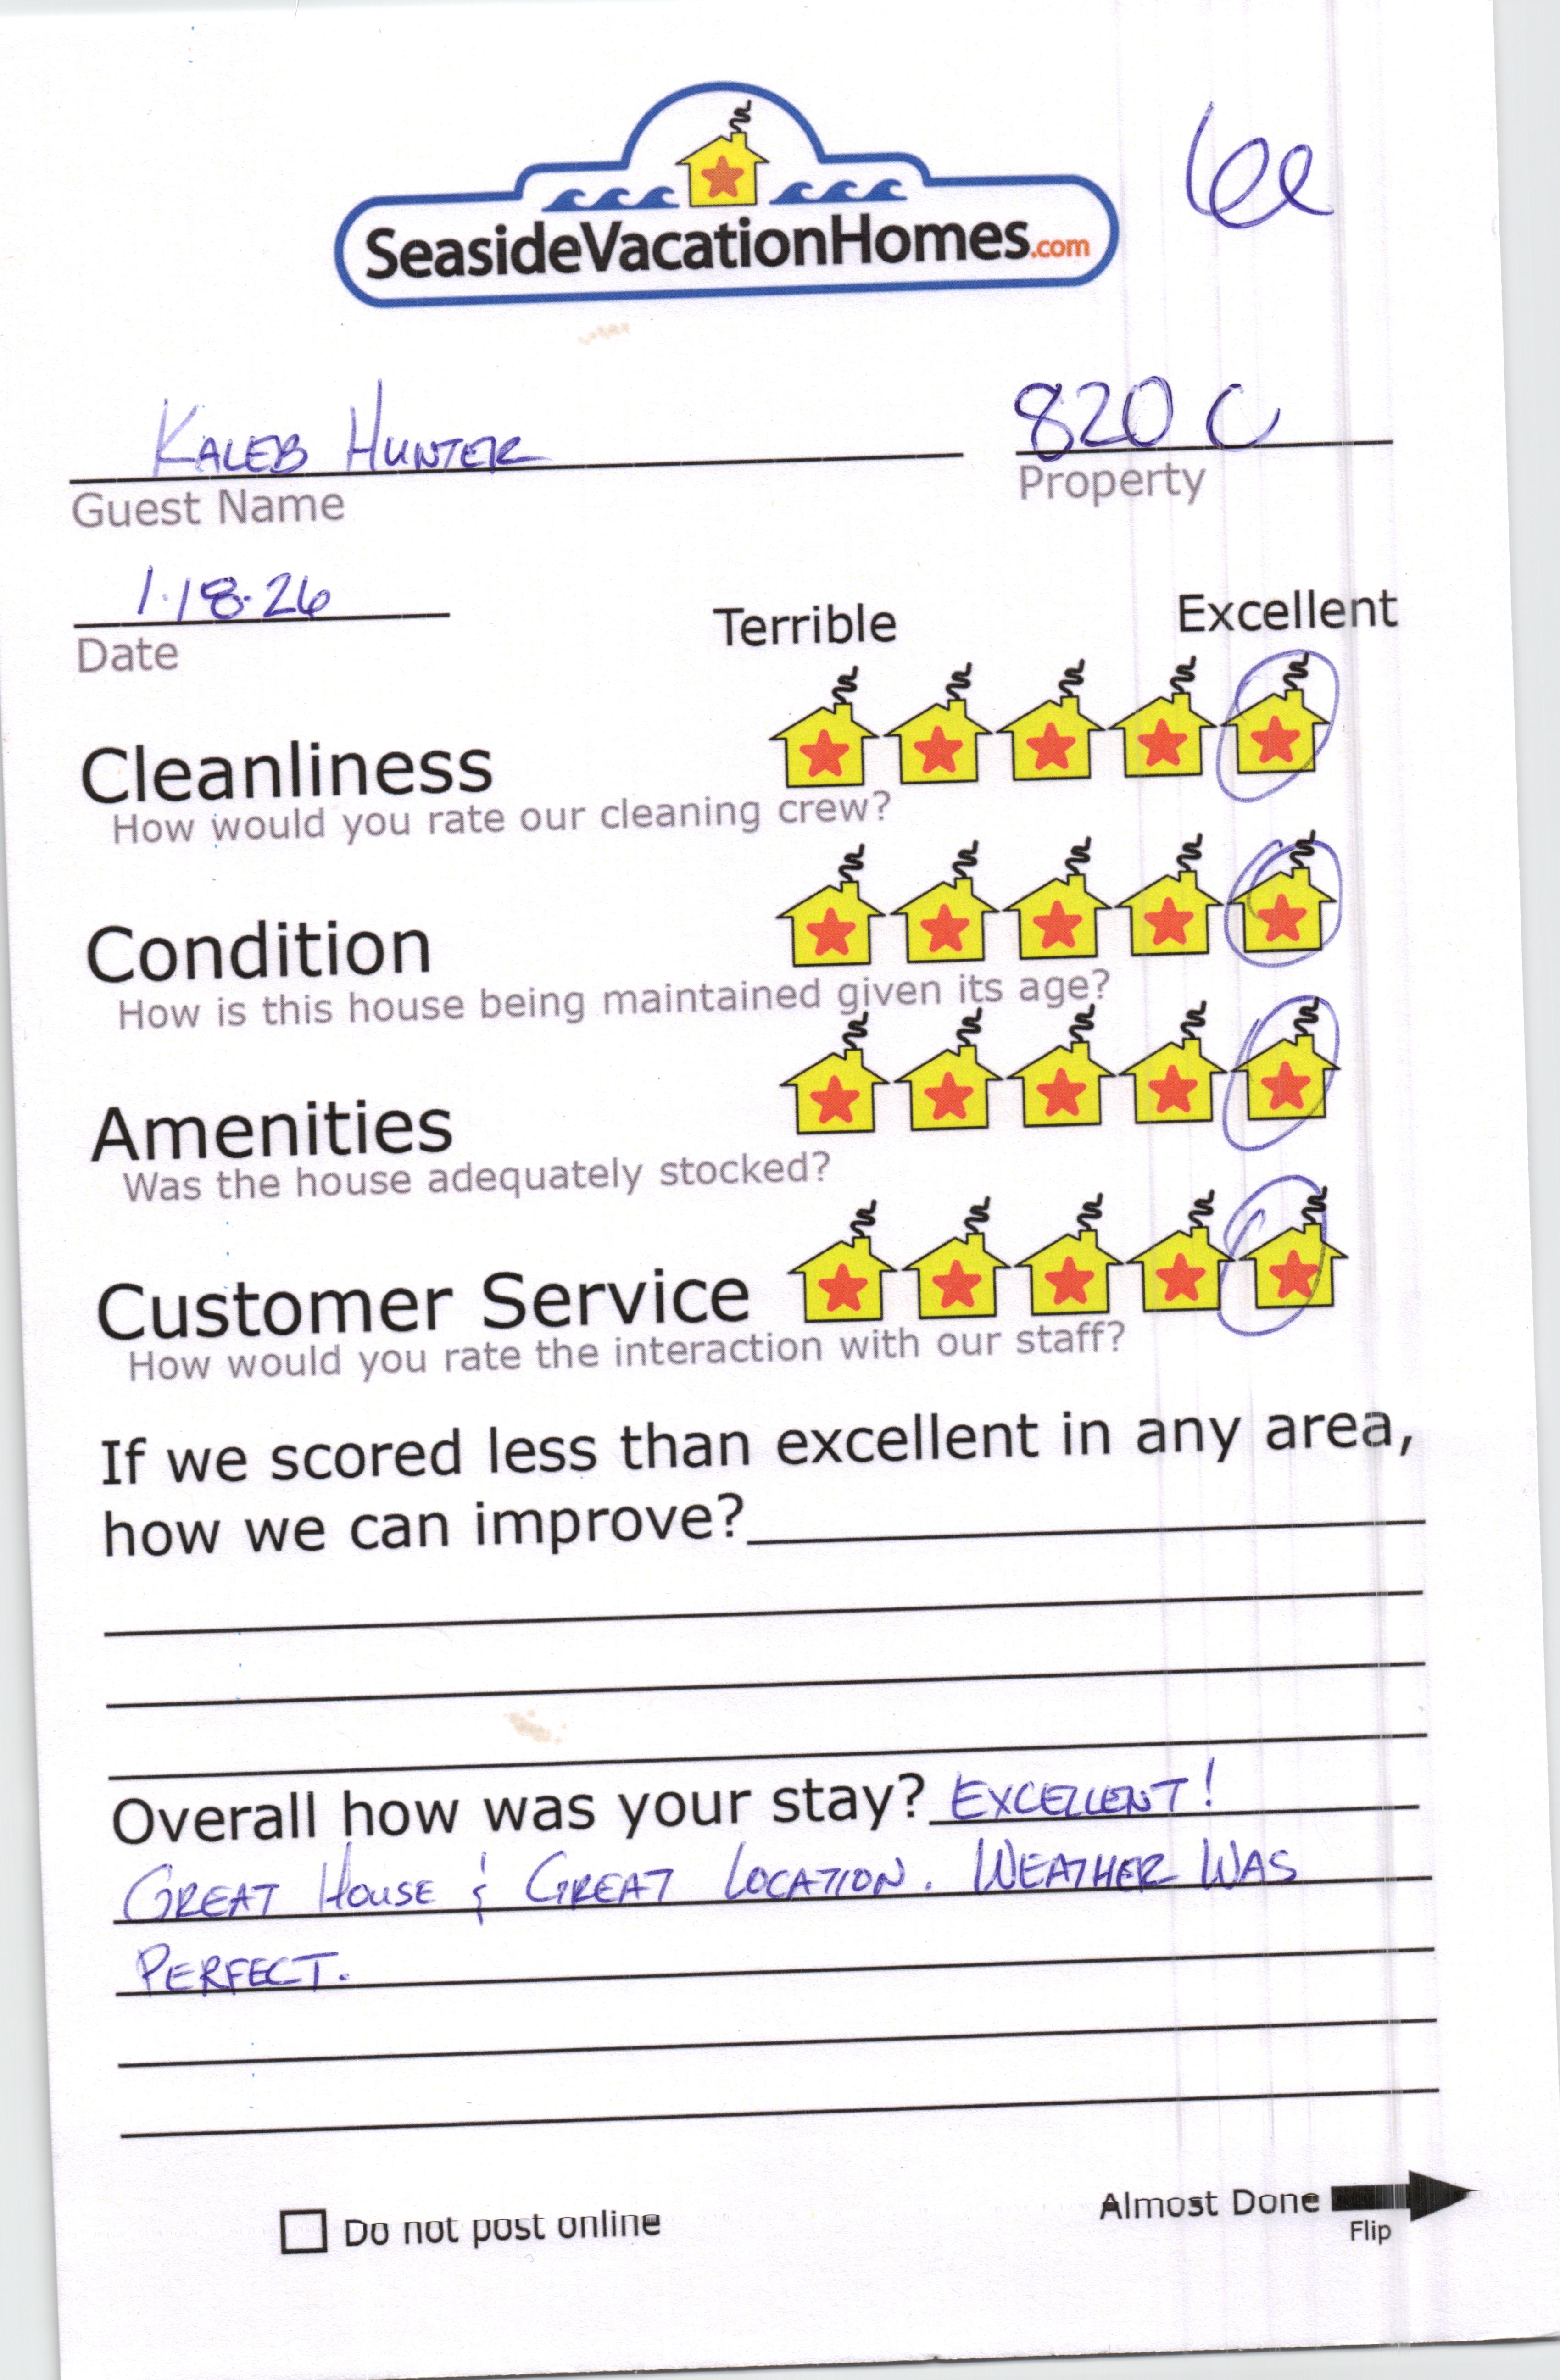 SeasideVacationHomes.com
KALEB HUNTER 820 C
Guest Name Property
1·18·26
Date
Terrible Excellent
Cleanliness
How would you rate our cleaning crew?
Condition
How is this house being maintained given its age?
Amenities
Was the house adequately stocked?
Customer Service
How would you rate the interaction with our staff?
If we scored less than excellent in any area,
how we can improve?
Overall how was your stay? EXCELLENT!
GREAT HOUSE & GREAT LOCATION. WEATHER WAS
PERFECT.
Do not post online
Almost Done
Flip